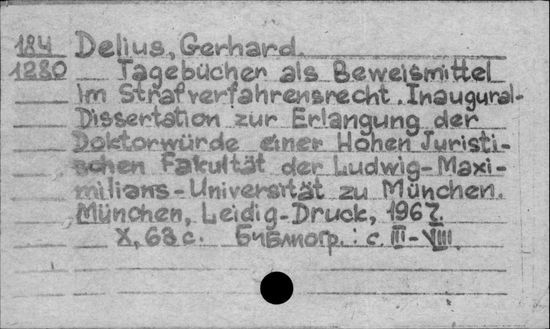 184 Delius, Gerhard.
1280 Tagebücher als Beweismittel
im Strafverfahrensrecht. Inaugural-
Dissertation zur Erlangung der
Doktorwürde einer Hohen Juristi-
schen Fakultät der Ludwig-Maxi-
milians-Universität zu München.
München, Leidig-Druck, 1967.
X, 68 с. Библиогр.: с. III-VIII